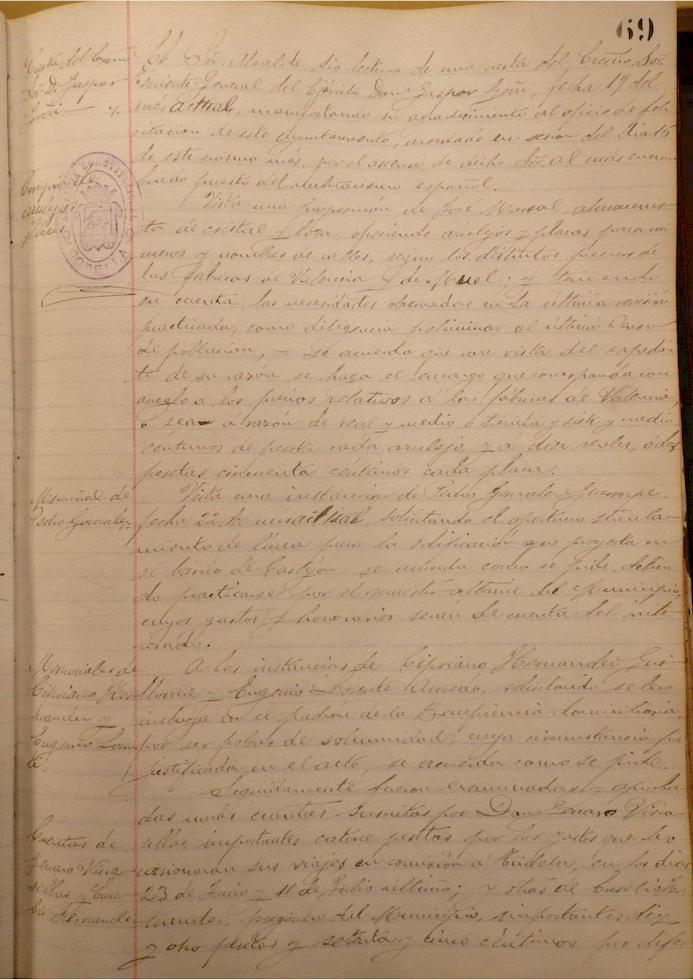 69
Carta del Excmo
Sor Dn Gaspar
Goñi
El Sor Alcalde dio lectura de una carta del Excmo. Sor.
Teniente General del Ejército Don Gaspar Goñi, fecha 19 del
mes actual, manifestando su agradecimiento al oficio de feli-
citacion de este Ayuntamiento, acordado en sesión del dia
de este mismo mes, por el ascenso de dicho Sor. al mas encum-
brado puesto del militarismo español.
Compra de
azulejos y
placas
Vista una proposición de José Marsal, almacenis-
ta de cristal y loza, ofreciendo azulejos y placas para nu-
meros y nombres de calles, segun los distintos precios de
las fabricas de Valencia y de Muel; y teniendo
en cuenta las necesidades observadas en la última revisión
practicada, como diligencia preliminar al último Censo
de poblacion, — se acuerda que con vista del expedien-
te de su razón se haga el encargo que corresponda con
arreglo a los precios relativos á las fábricas de Valencia,
ó sea á razón de real y medio ó treinta y siete y medio
céntimos de peseta cada azulejo, y á diez reales, ó dos
pesetas cincuenta centimos cada placa.
Memorial de
Pedro Gonzalez
Vista una instancia de Pedro Gonzalez
fecha 22 de mes actual, solicitando el oportuno señala-
miento de linea para la edificación que proyecta en
el barrio de Castejón, se acuerda como se pide, debien-
do practicarse por el maestro alarife del Municipio,
cuyos gastos y honorarios serán de cuenta del inte-
resado.
Memoriales de
Cipriano Her-
nandez y
Eugenio Loren-
te.
A las instancias de Cipriano Hernandez
y Eugenio Lorente solicitando se les
incluya en el padrón de la Beneficencia domiciliaria,
por ser pobres de solemnidad, cuya circunstancia fue
justificada en el acto, se acuerda como se pide.
Seguidamente fueron examinadas y aproba-
das unas cuentas suscritas por Don Genaro Visia-
Cuentas de
Genaro Visia-
sillas y Euse-
bio Hernandez
sillas, importantes catorce pesetas por los gastos que le o-
casionaron sus viajes en comisión á Tudela, en los dias
23 de Junio y 11 de Julio ultimo; y otras de Eusebio Her-
nandez, pregonero del Municipio, importantes diez
y ocho pesetas y setenta y cinco céntimos por dife-